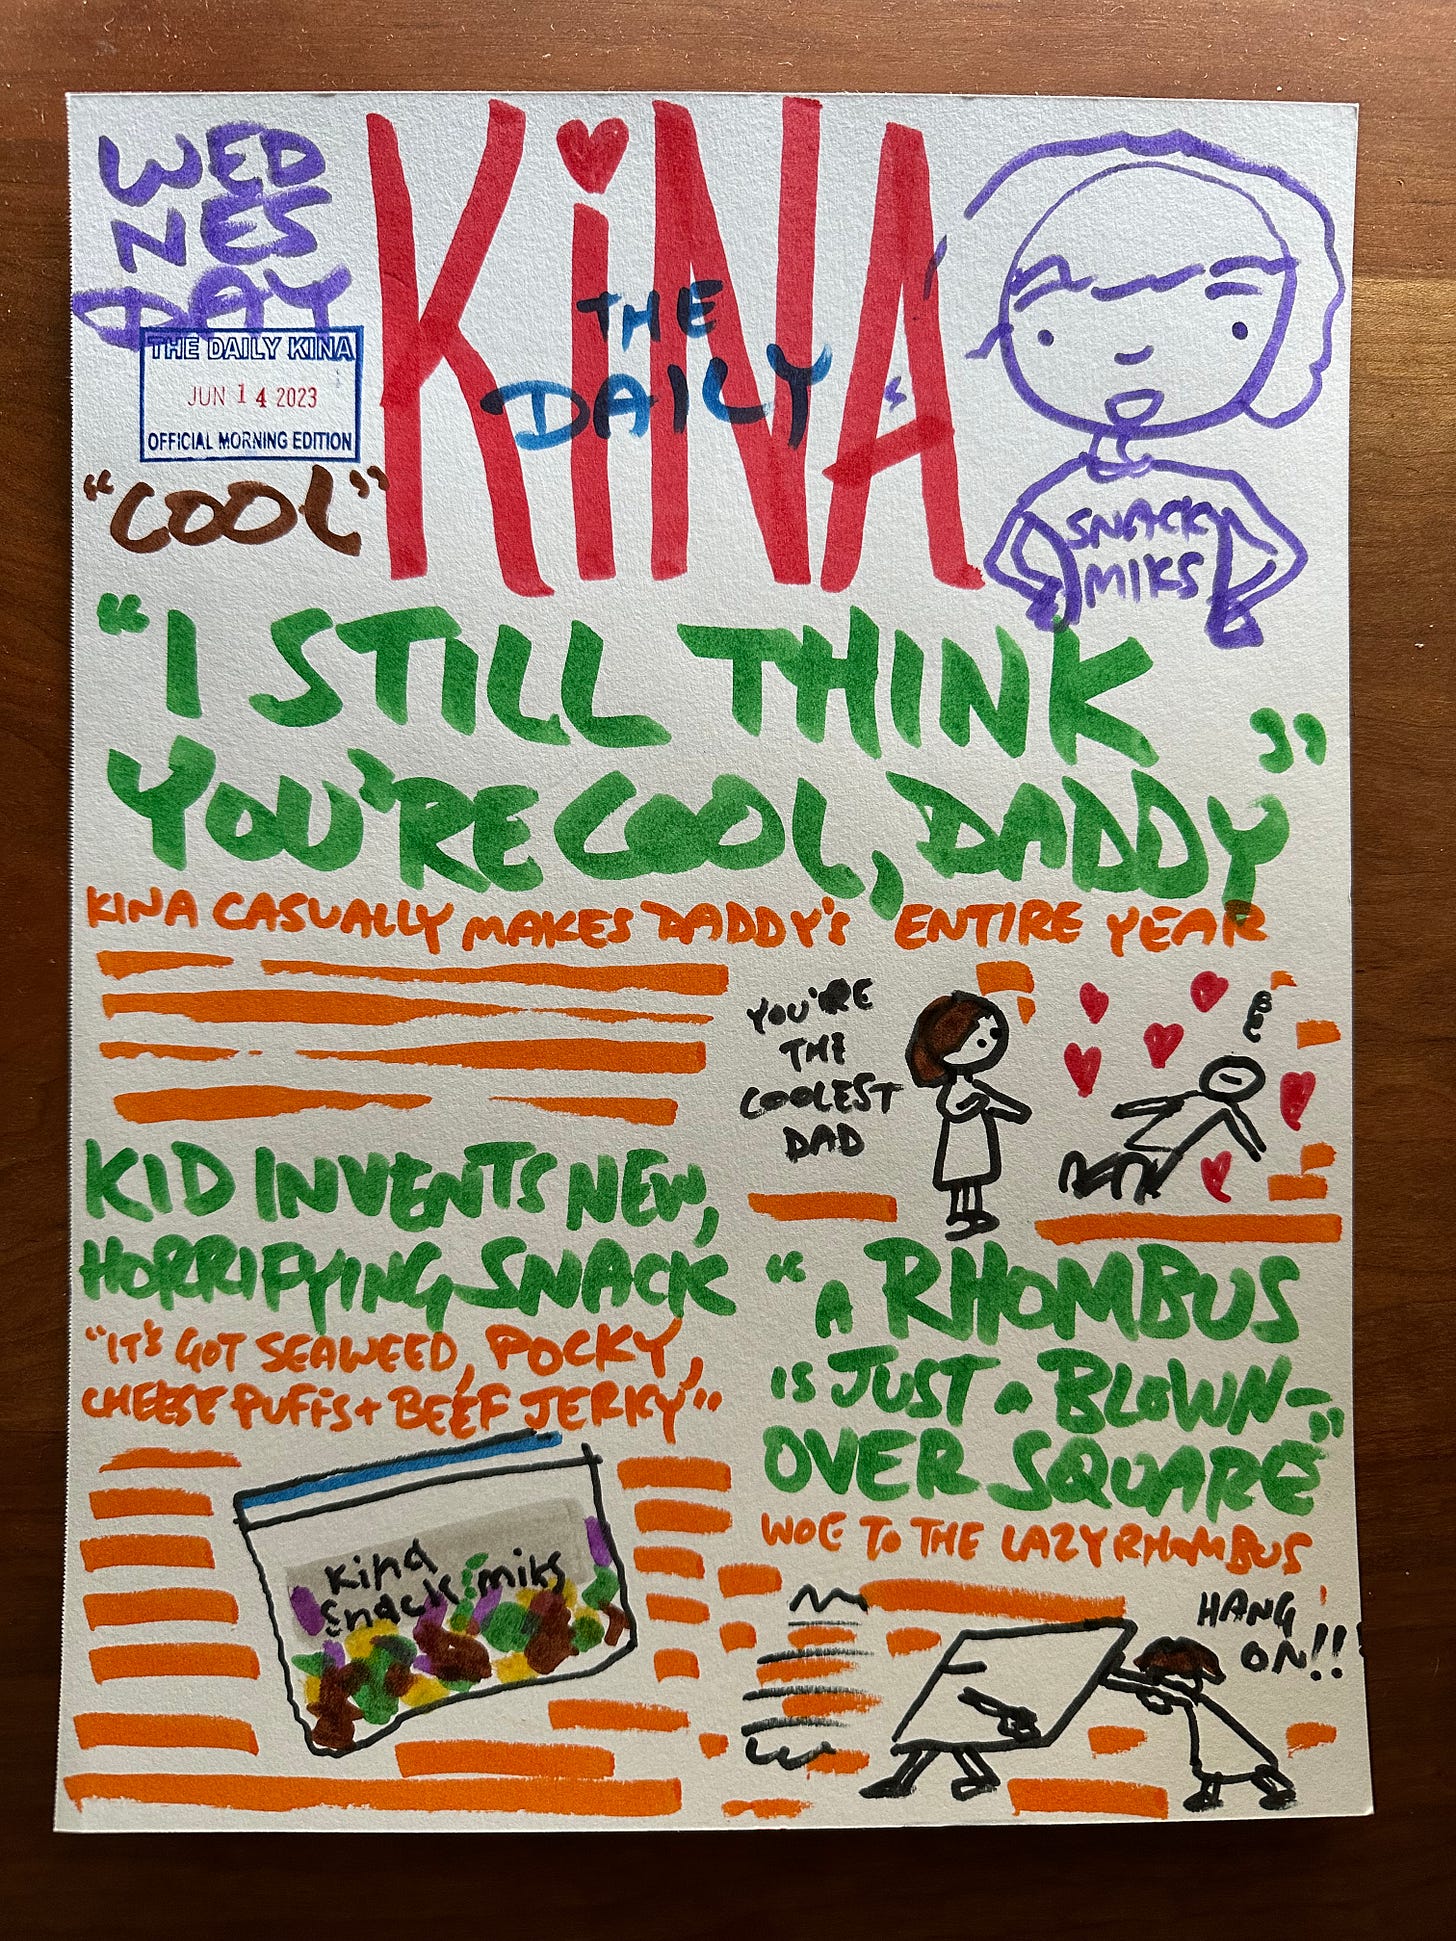 WED
NES
DAY
THE DAILY KINA
JUN 14 2023
OFFICIAL MORNING EDITION
"COOL"
KiNA
THE
DAILY
SNACK
MIKS
"I STILL THINK
YOU'RE COOL, DADDY"
KINA CASUALLY MAKES DADDY'S ENTIRE YEAR
YOU'RE
THE
COOLEST
DAD
KID INVENTS NEW,
HORRIFYING SNACK
"IT'S GOT SEAWEED, POCKY,
CHEESE PUFFS + BEEF JERKY"
kina
snack miks
"A RHOMBUS
IS JUST a BLOWN-
OVER SQUARE"
WOE TO THE LAZY RHOMBUS
HANG
ON!!